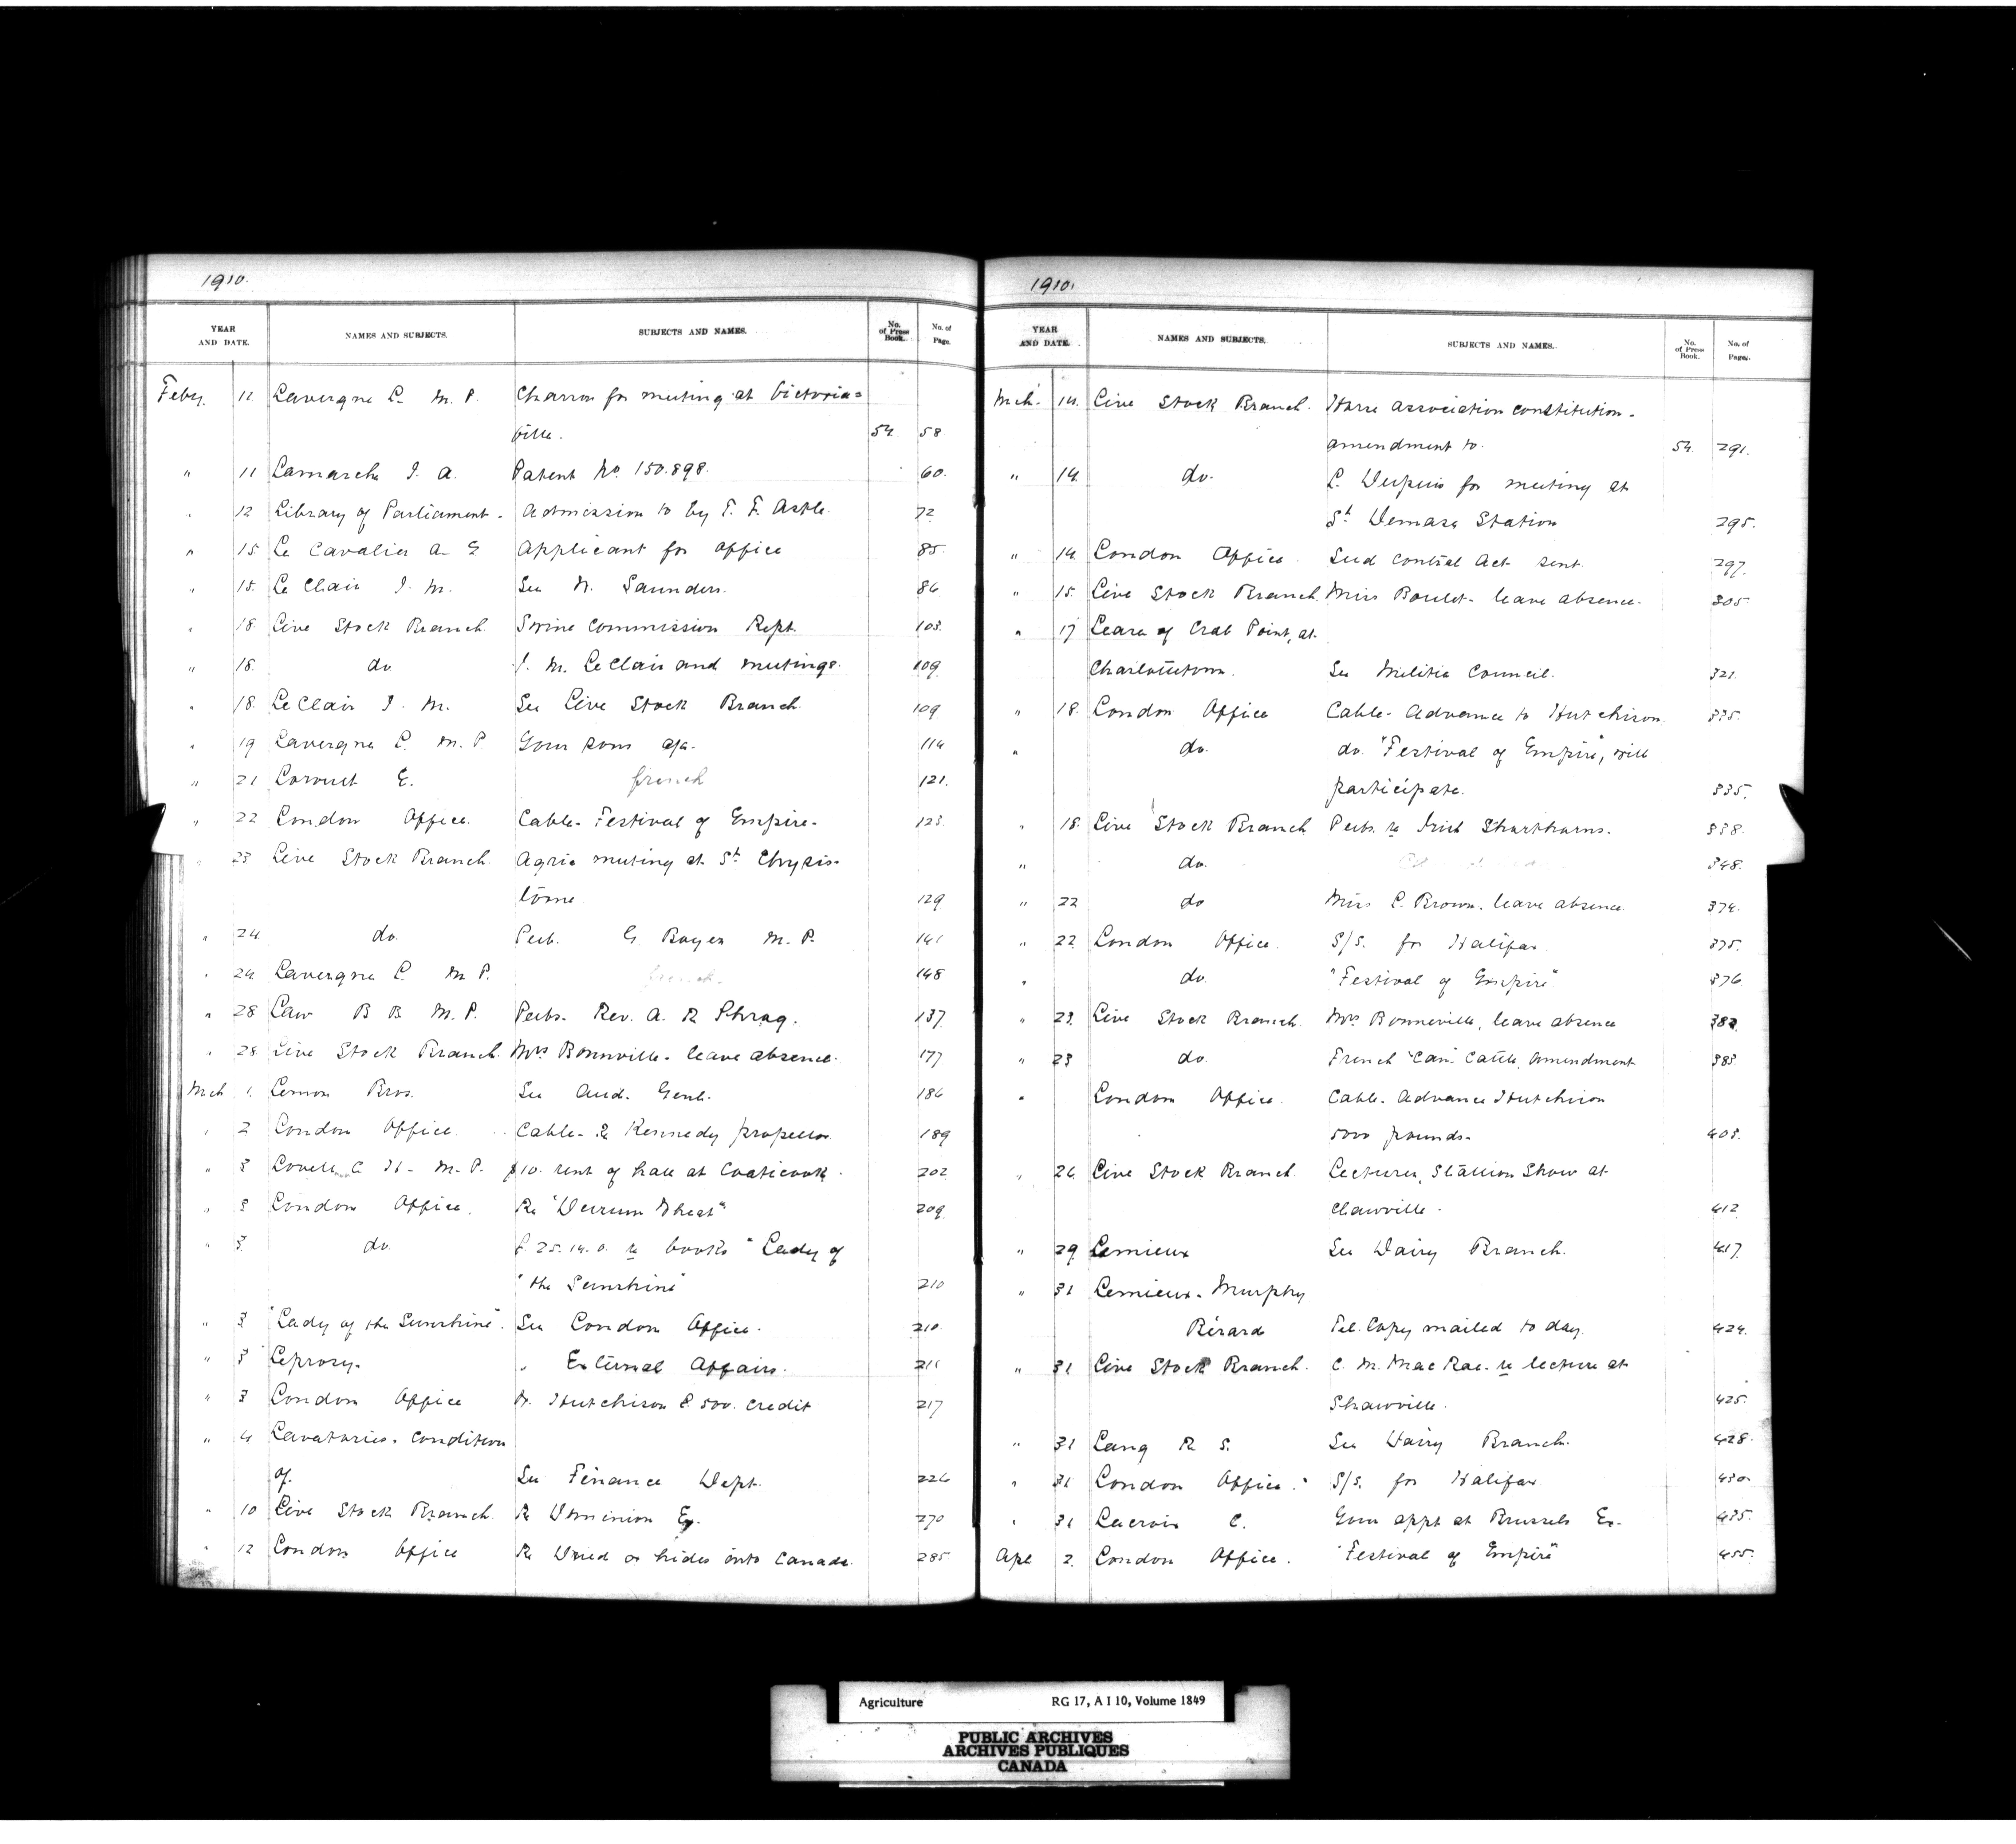 1910.
YEAR AND DATE. NAMES AND SUBJECTS. SUBJECTS AND NAMES. No. of Press Book. No. of Page.
Feby. 11 Lavergne L. M. P. Charron for meeting at Victoria=
ville. 54 58
" 11 Lamarche J. A. Patent No. 150.898. 60.
" 12 Library of Parliament - Admission to by T. F. Astle. 72
" 15 Le Cavalier A- E Applicant for office 85.
" 15. Le Clair J. M. See W. Saunders. 86
" 18. Live Stock Branch Swine Commission Rept. 103.
" 18. do J. M. LeClair and meetings. 109
" 18. LeClair J. M. See Live Stock Branch. 109
" 19 Lavergne L. M. P. Your sons a/c. 114
" 21 E. french 121.
" 22 London Office. Cable- Festival of Empire- 123.
" 23 Live Stock Branch. Agric meeting at St. Chrysis-
tôme 129
" 24 do. Peeb. G Boyer M. P. 141
" 24 Lavergne L. M P. french. 148
" 28 Law B B M. P. Peebs. Rev. A. R 137
" 28 Live Stock Branch. Mrs Bonnville- leave absence. 177
Mch 1. Lemon Bros. See Aud. Genl. 186
" 2 London Office. Cable- re Kennedy propellor 189
" 3 Lovell C H- M- P. $10. rent of hall at Coaticook. 202
" 3 London Office. Re "Durum Wheat" 209
" 3. do. £. 25. 14. 0. re books "Lady of
"the Sunshine" 210
" 3 "Lady of the Sunshine". See London Office. 210.
" 3 Leprosy. " External Affairs. 211
" 3 London Office W. Hutchison £ 500. credit 217
" 4 Lavatories. Condition
of. See Finance Dept. 226
" 10 Live Stock Branch. Re Dominion Ex. 270
" 12 London Office Re hides into Canada. 285
1910.
YEAR AND DATE. NAMES AND SUBJECTS. SUBJECTS AND NAMES. No. of Press Book. No. of Page.
Mch. 14. Live Stock Branch. Horse association constitution-
amendment to. 54. 291.
" 14 do. L. Dupuis for meeting at
St. Damase Station 295.
" 14 London Office. Seed Control Act sent. 297.
" 15. Live Stock Branch. Miss Boulet- leave absence- 305
" 17 Lease of Crab Point, at-
Charlottetown. See Militia Council. 321.
" 18. London Office Cable- Advance to Hutchison. 335.
" do. do. "Festival of Empire", will
participate. 335.
" 18. Live Stock Branch Peebs. re Irish Shorthorns. 338.
" do. 348.
" 22 do Miss L. Brown. leave absence. 374.
" 22 London Office. S/S. for Halifax. 375.
" do. "Festival of Empire" 376
" 23. Live Stock Branch. Mrs Bonneville, leave absence 382
" 23 do. French Can. Cattle, Amendment 383.
" London Office. Cable. Advance Hutchison
5000 pounds- 403.
" 26 Live Stock Branch. Lecturer, Stallion Show at
Shawville - 412
" 29 Lemieux See Dairy Branch. 417.
" 31 Lemieux. Murphy
Bérard Tel. Copy mailed to day. 424.
" 31 Live Stock Branch. C. M. MacRae. re lecture at
Shawville. 425.
" 31 Lang R S. See Dairy Branch. 428.
" 31 London Office. S/S. for Halifax 430.
" 31 Lacroix C. Your appt at Brussels Ex- 435.
Apl 2. London Office. "Festival of Empire" 455.
Agriculture RG 17, A I 10, Volume 1849
PUBLIC ARCHIVES
ARCHIVES PUBLIQUES
CANADA